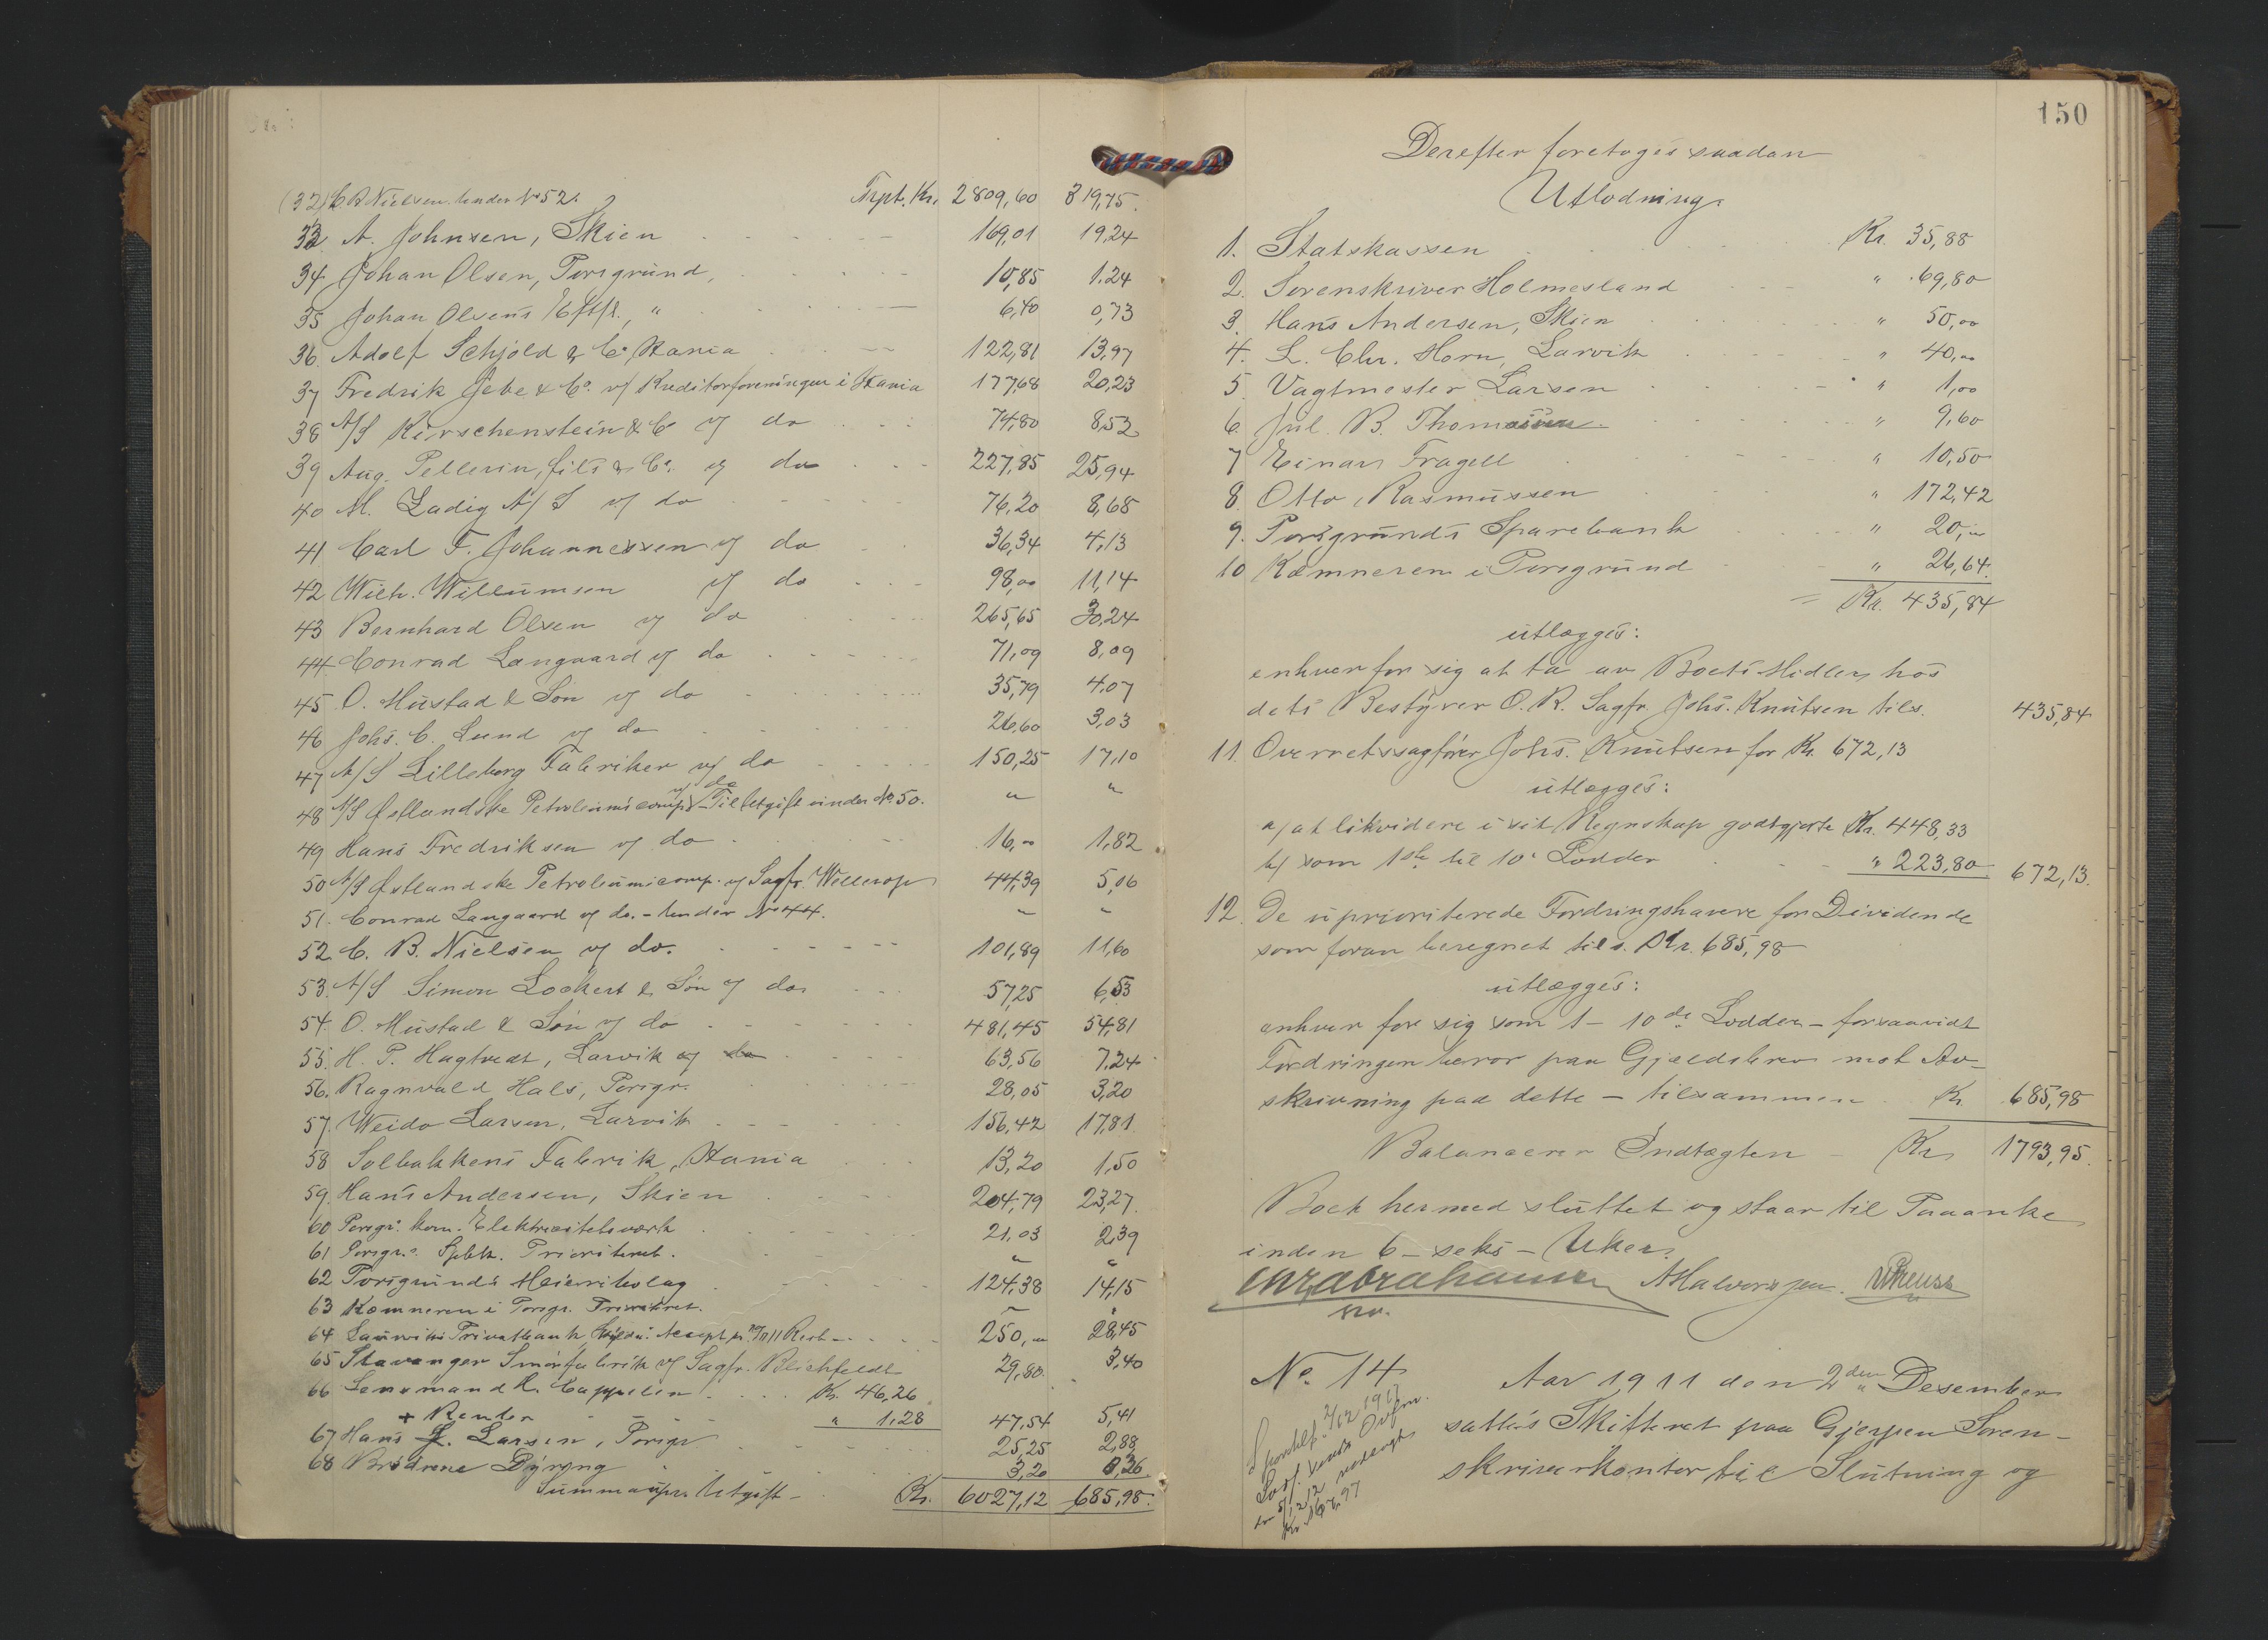 (32) C. B. Nielsen. Under No 52. Trpt. Kr. 2809,60 319,75.
33 A. Johnsen, Skien 169,01 19,24
34 Johan Olsen, Porsgrund, 10,85 1.24
35 Johan Olsens Eftfl., " 6,40 0,73
36. Adolf Schjöld & Co, Kania 122,81 13,97
37 Fredrik Jebe & Co. v/ Kreditorforeningen i Kania 177,68 20,23
38 A/S Kirschenstein & Co v/ do 74,80 8,53
39 Aug. Pellerin, fils & Co. v/ do 227,85 25,94
40 M. Zadig A/S v/ do 76,20 8,68
41 Carl F. Johannessen v/ do 36,34 4,13
42 Wilh. Willumsen v/ do 98,00 11,14
43 Bernhard Olsen v/ do 265,65 30,24
44. Conrad Langaard v/ do 71,09 8,09
45 O. Mustad & Søn v/ do 35,79 4,07
46 Johs. C. Lund v/ do 26,60 3,03
47 A/S Lilleborg Fabriker v/ do 150,25 17,10
48 A/S Østlandske Petroleumscomp. v/ do - Til Utgift under No 50. " "
49 Hans Fredriksen v/ do 16,00 1,82
50 A/S Østlandske Petroleumscomp. v/ Sagfr. Wellerop 44,39 5,06
51. Conrad Langaard v/ do. - Under No 44. " "
52 C. B. Nielsen v/ do. 101,89 11,60
53. A/S Simon Lockert & Søn v/ do 57,25 6,53
54. O. Mustad & Søn v/ do 481,45 54,81
55. H. P. Hagtvedt, Larvik v/ do 63,56 7.24
56. Ragnvald Hals, Porsgr. 28,05 3,20
57. Weido Larsen, Larvik 156,42 17,81
58 Solbakkens Fabrik, Kania 13,20 1,50
59. Hans Andersen, Skien 204,79 23,27.
60 Porsgr. kom. Elektricitetsverk 21,03 2,39
61 Porsgr. Spbk. Prioritert. " "
62 Porsgrunds Meieribolag 124,38 14,15
63 Kæmneren i Porsgr. Prioritert. " "
64 Laurviks Privatbank, Accept pr. Rest 250,00 28,45
65 Stavanger Smørfabrik v/ Sagfr. Blichfeldt 29,80. 3,40
66 Lensmand R. Cappelen Kr. 46,26
+ Renter " 1,28 47,54 5,41
67 Hans L. Larsen, Porsgr 25,25 2,88
68 Brødrene Dyring 3,20 0,36
Summa upr. Utgift - Kr. 6027,12 685,98.
150
Derefter foretoges saadan
Utlodning.
1. Statskassen Kr. 35,88
2. Sorenskriver Holmesland " 69,80
3. Hans Andersen, Skien " 50,00
4. L. Chr. Horn, Larvik " 40,00
5. Vagtmester Larsen " 1,00
6. Jul. B. Thomassen " 9,60
7 Einar Fragell " 10,50
8. Otto Rasmussen " 172,42
9. Porsgrunds Sparebank " 20,00
10 Kæmneren i Porsgrund " 26,64.
= Kr. 435,84
utlægges:
enhver for sig at ta av Boets Midler hos
dets Bestyrer O. R. Sagfr. Johs. Knutsen tils. 435,84
11. Overretssagfører Johs. Knutsen for Kr. 672,13
utlægges:
a/ at likvidere i sit Regnskap godtgjorte Kr. 448,33
b/ som 1ste til 10. Lodder " 223,80 672,13.
12. De uprioriterede Fordringshavere for Dividende
som foran beregnet tils. Kr. 685,98
utlægges:
enhver for sig som 1 - 10de Lodder - forsaavidt
Fordringen beror paa Gjældsbrev mot Av-
skrivning paa dette - tilsammen Kr. 685,98
Balancerer Indtægten - Kr 1793,95.
Boet hermed sluttet og staar til Paaanke
inden 6 - seks - Uker.
A Halvorsen.
No 14 Aar 1911 den 2den Desember
sattes Skifteret paa Gjerpen Soren-
skriverkontor til Slutning og
2/12 1911
Kr. 167,97